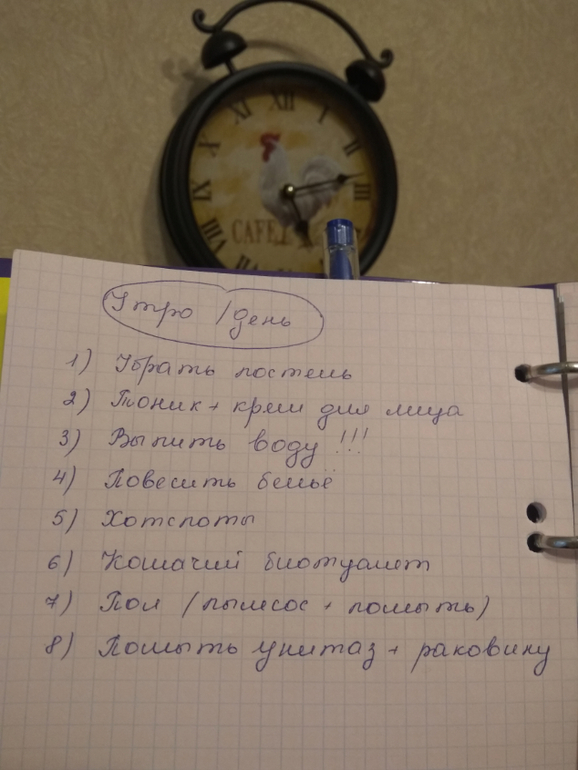 XI XII I
X II
IX III
CAFE
VIII
VII
Утро / день
1) Убрать постель
2) Тоник + крем для лица
3) Выпить воду!!!
4) Повесить бельё
5) Хотспоты
6) Кошачий биотуалет
7) Пол (пылесос + помыть)
8) Помыть унитаз + раковину